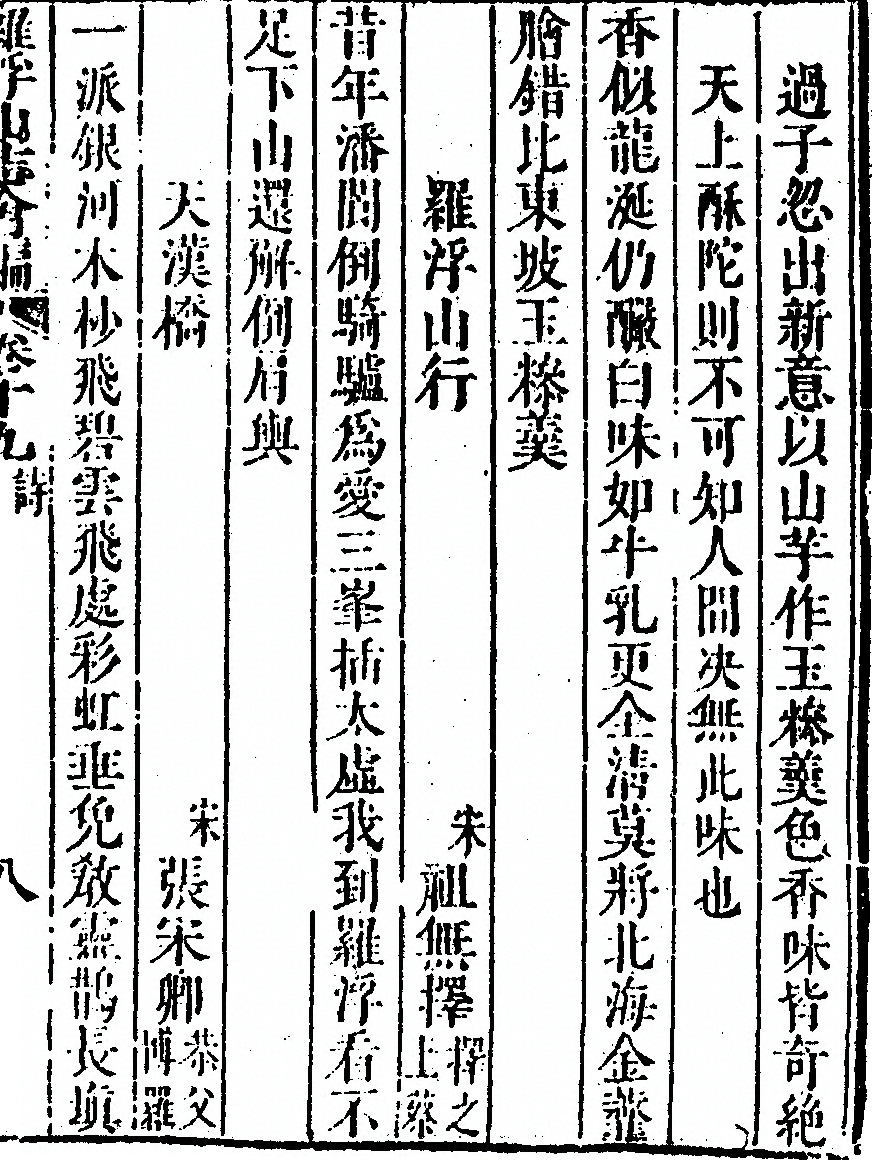 過子忽出新意以山芋作玉糝羹色香味皆奇絶
天上酥陀則不可知人間决無此味也
香似龍涎仍釅白味如牛乳更全清莫將北海金虀
膾錯比東坡玉糝羹
羅浮山行
宋祖無擇擇之上蔡
昔年潘閬倒騎驢爲愛三峯插太虛我到羅浮看不
足下山還解倒肩輿
天漢橋
宋張宋卿恭父博羅
一派銀河木杪飛碧雲飛處彩虹垂免教靈鵲長填
羅浮山志會編 卷十九 詩 八